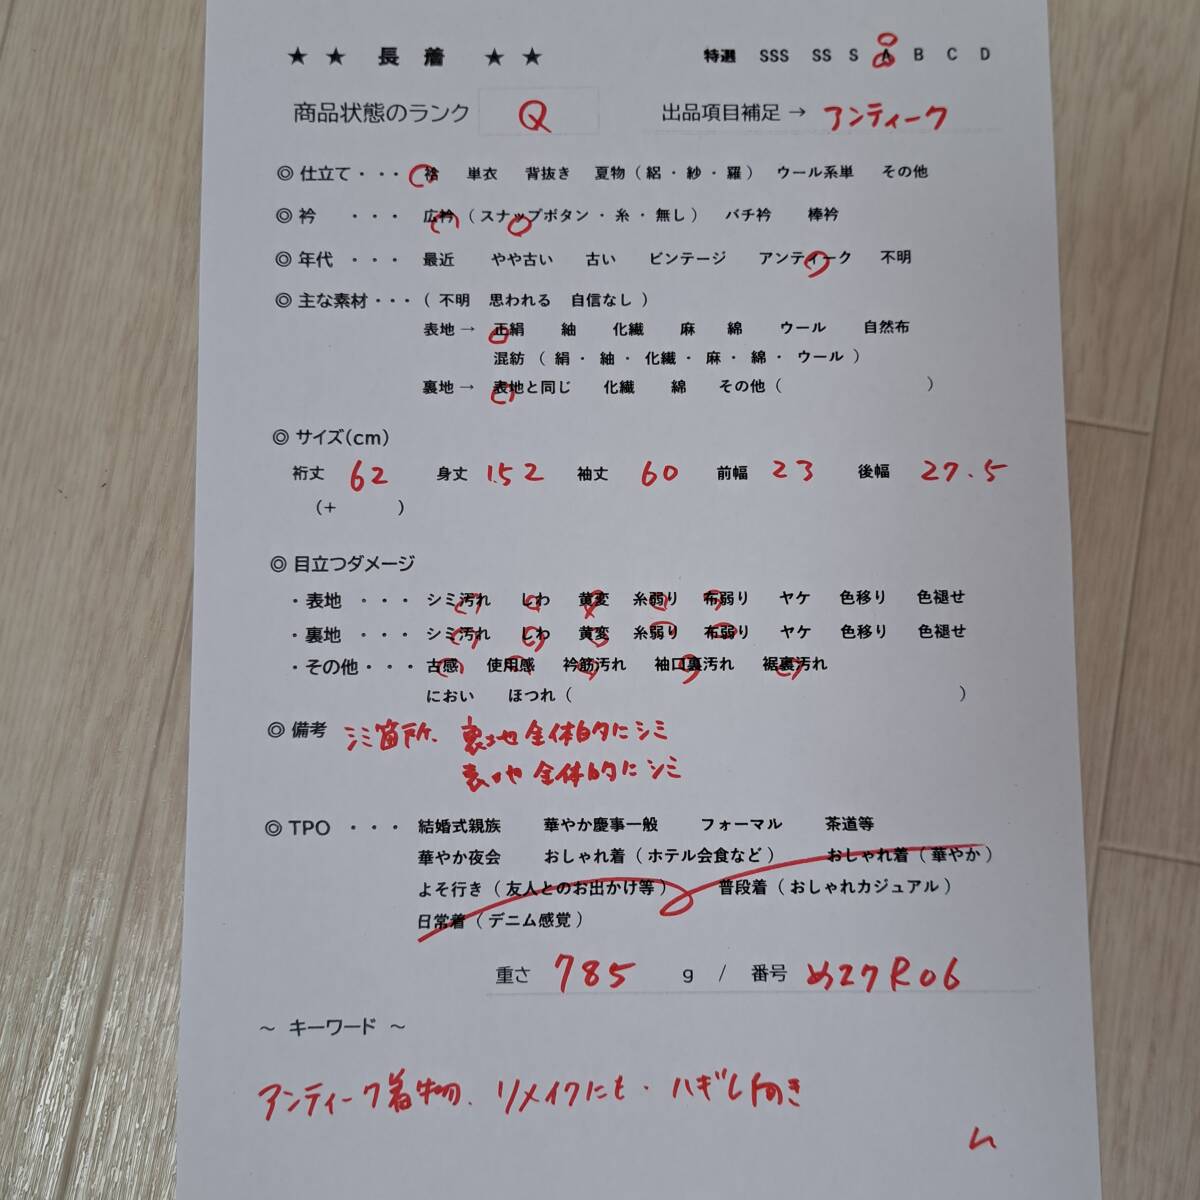 ★ ★ 長 着 ★ ★ 特選 SSS SS S A B C D
商品状態のランク Q 出品項目補足 → アンティーク
◎ 仕立て ・・・ 袷 単衣 背抜き 夏物 ( 絽 ・ 紗 ・ 羅 ) ウール系単 その他
◎ 衿 ・・・ 広衿 ( スナップボタン ・ 糸 ・ 無し ) バチ衿 棒衿
◎ 年代 ・・・ 最近 やや古い 古い ビンテージ アンティーク 不明
◎ 主な素材 ・・・ ( 不明 思われる 自信なし )
表地 → 正絹 紬 化繊 麻 綿 ウール 自然布
混紡 ( 絹 ・ 紬 ・ 化繊 ・ 麻 ・ 綿 ・ ウール )
裏地 → 表地と同じ 化繊 綿 その他 ( )
◎ サイズ(cm)
裄丈 62 身丈 152 袖丈 60 前幅 23 後幅 27.5
(+ )
◎ 目立つダメージ
・ 表地 ・・・ シミ汚れ しわ 黄変 糸弱り 布弱り ヤケ 色移り 色褪せ
・ 裏地 ・・・ シミ汚れ しわ 黄変 糸弱り 布弱り ヤケ 色移り 色褪せ
・ その他 ・・・ 古感 使用感 衿筋汚れ 袖口裏汚れ 裾裏汚れ
におい ほつれ ( )
◎ 備考 シミ箇所、裏地全体的にシミ
全体的にシミ
◎ TPO ・・・ 結婚式親族 華やか慶事一般 フォーマル 茶道等
華やか夜会 おしゃれ着 ( ホテル会食など ) おしゃれ着 ( 華やか )
よそ行き ( 友人とのお出かけ等 ) 普段着 ( おしゃれカジュアル )
日常着 ( デニム感覚 )
重さ 785 g / 番号 め27R06
～ キーワード ～
アンティーク着物、リメイクにも・ハギレ向き